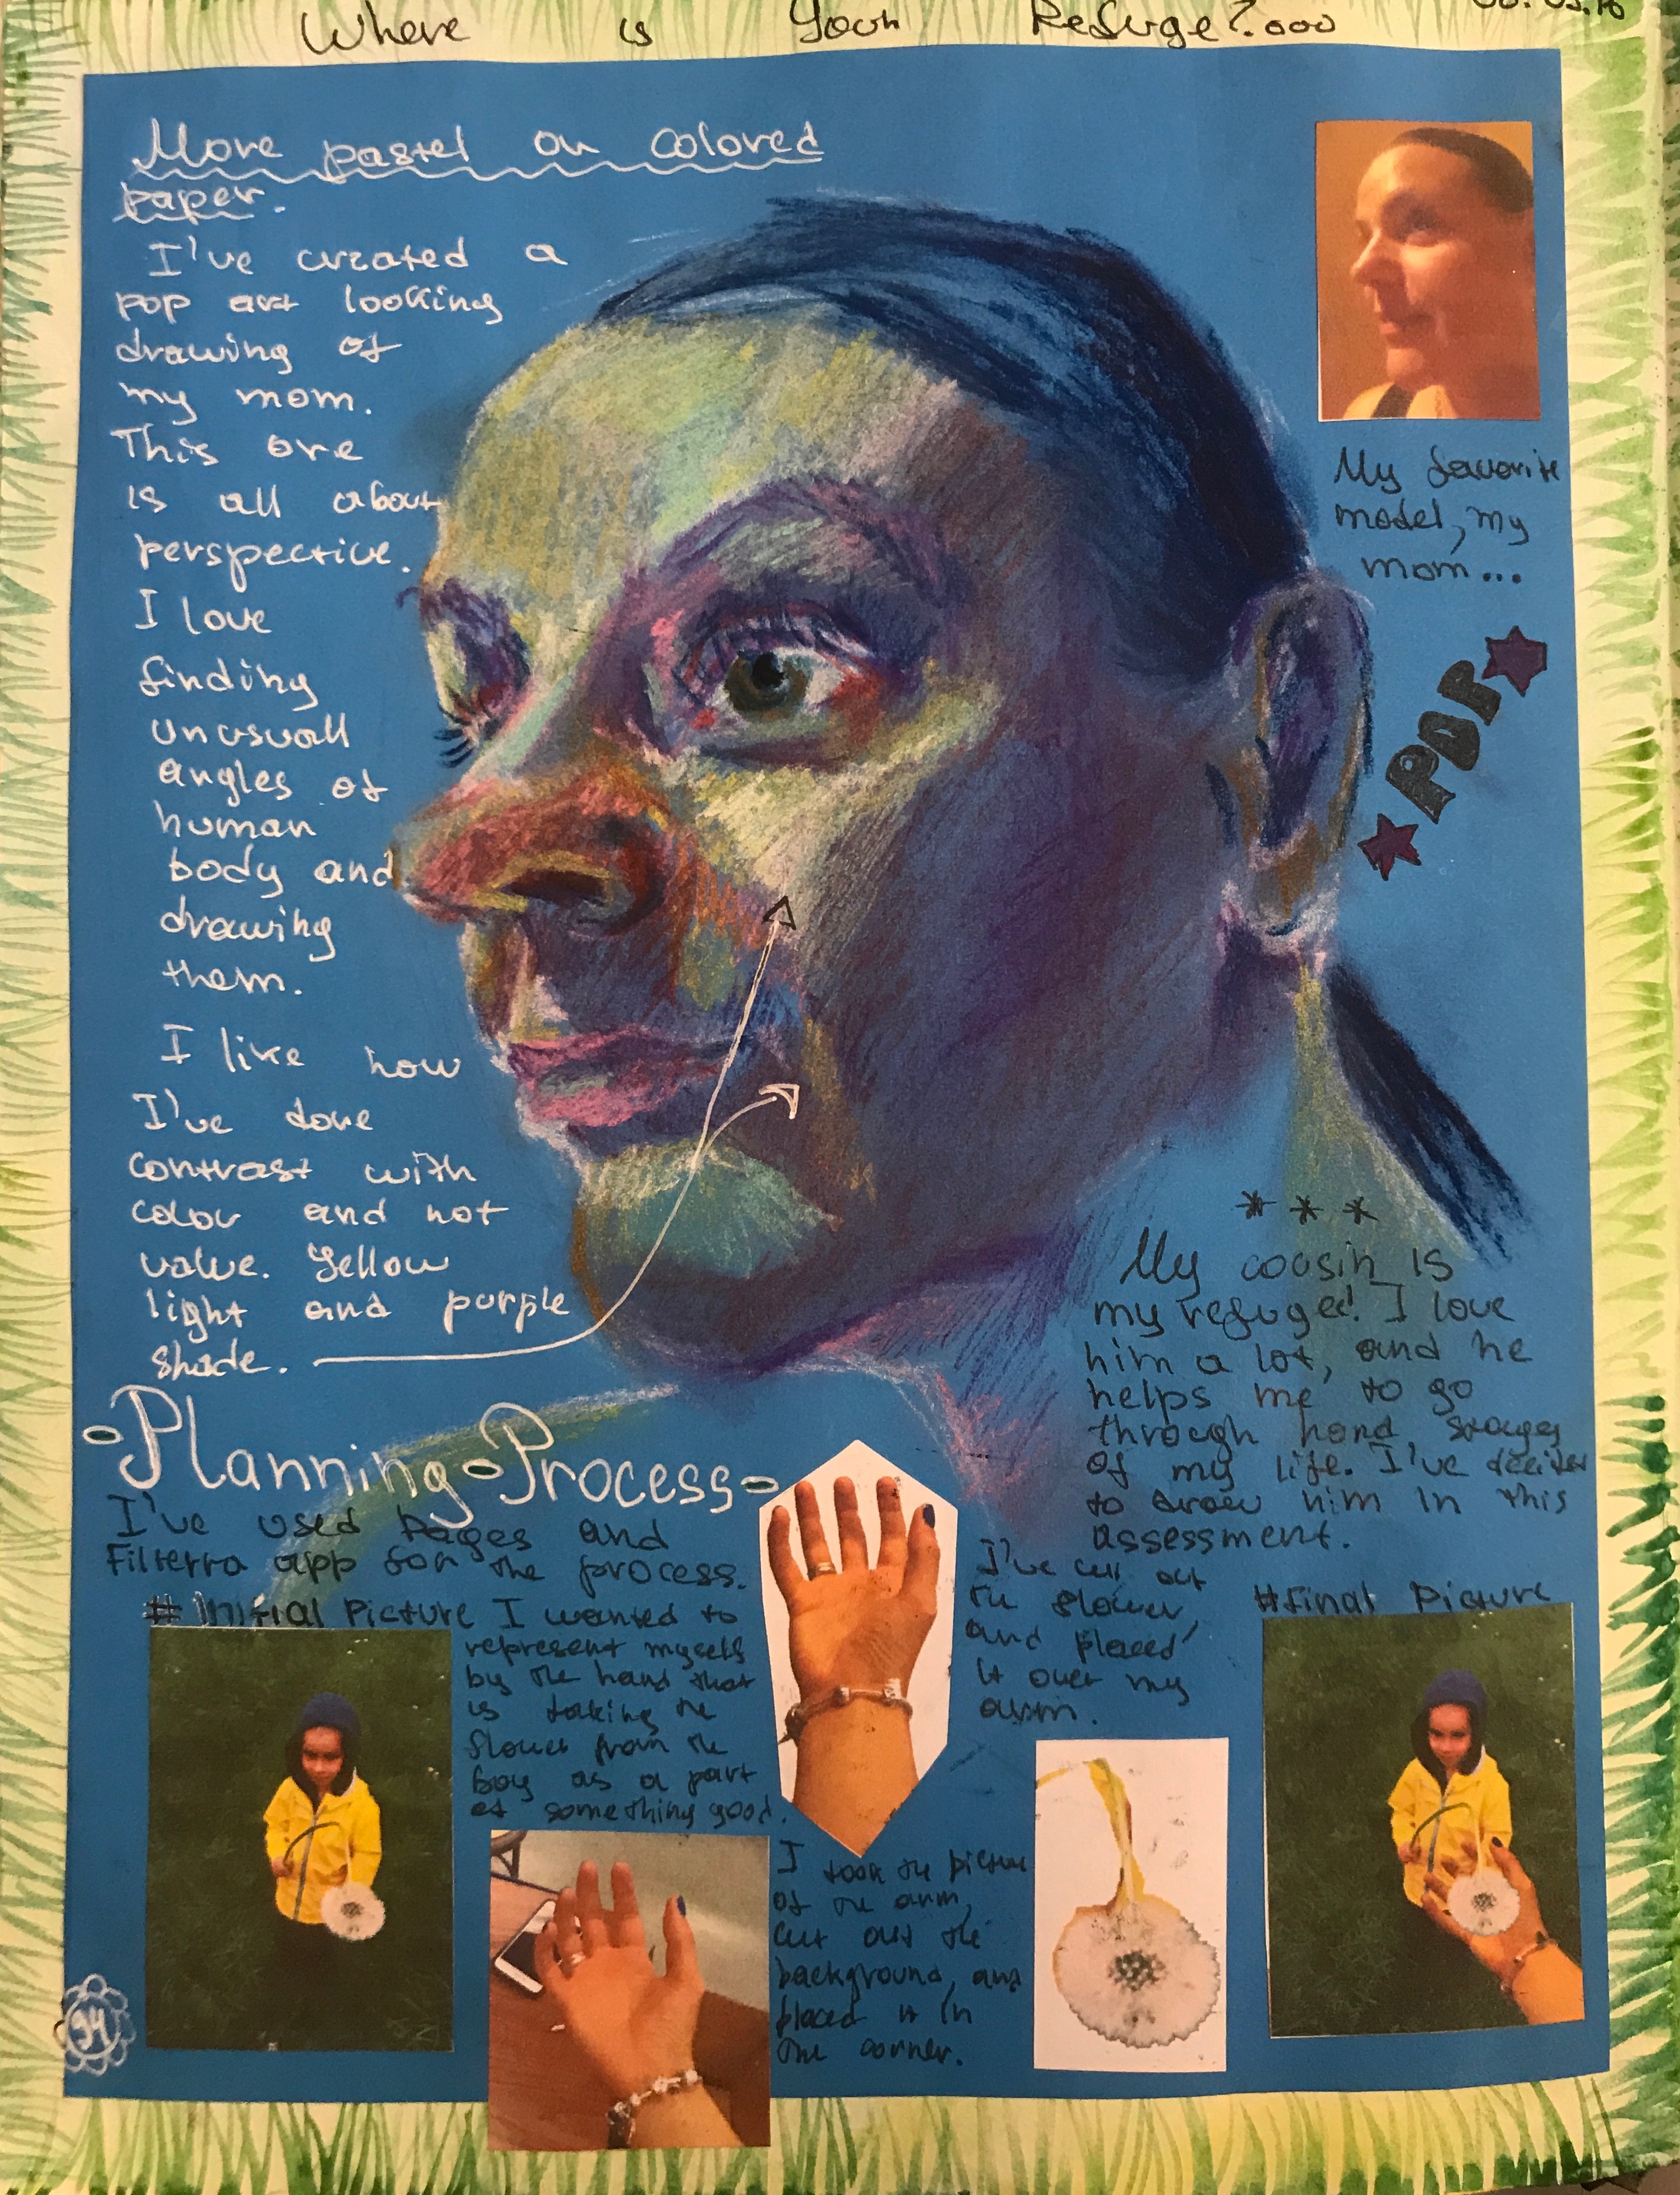 Where is Your Refuge?...
More pastel on colored
paper.
I've created a
pop art looking
drawing of
my mom.
This one
is all about
perspective.
I love
finding
unusuall
angles of
human
body and
drawing
them.
I like how
I've done
contrast with
color and not
value. Yellow
light and purple
shade.
My favorite
model, my
mom...
POP
***
My cousin is
my refuge! I love
him a lot, and he
helps me to go
through hard stages
of my life. I've decided
to draw him in this
assessment.
-Planning-Process-
I've used Pages and
Filterra app for the process.
# Initial Picture
I wanted to
represent myself
by the hand that
is taking the
flower from the
boy as a part
of something good.
I took the picture
of the arm,
cut out the
background, and
placed it in
the corner.
I've cut out
the flower,
and placed
it over my
arm.
#Final Picture
94